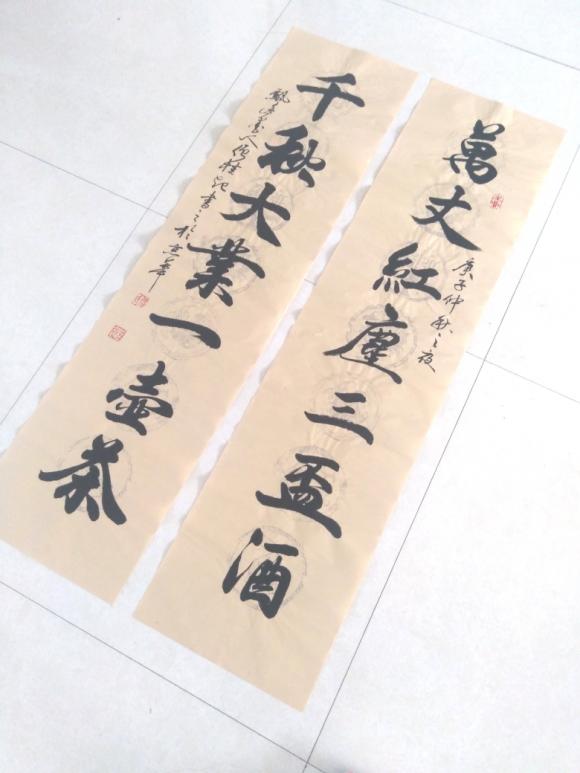 萬丈紅塵三盃酒
庚子仲秋之夜
千秋大業一壺茶